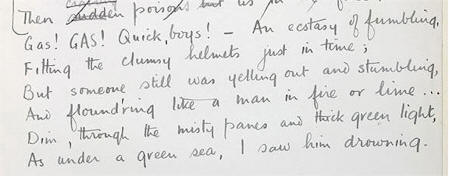 Then sudden poisons
Gas! GAS! Quick, boys! — An ecstasy of fumbling,
Fitting the clumsy helmets just in time;
But someone still was yelling out and stumbling,
And flound'ring like a man in fire or lime...
Dim, through the misty panes and thick green light,
As under a green sea, I saw him drowning.